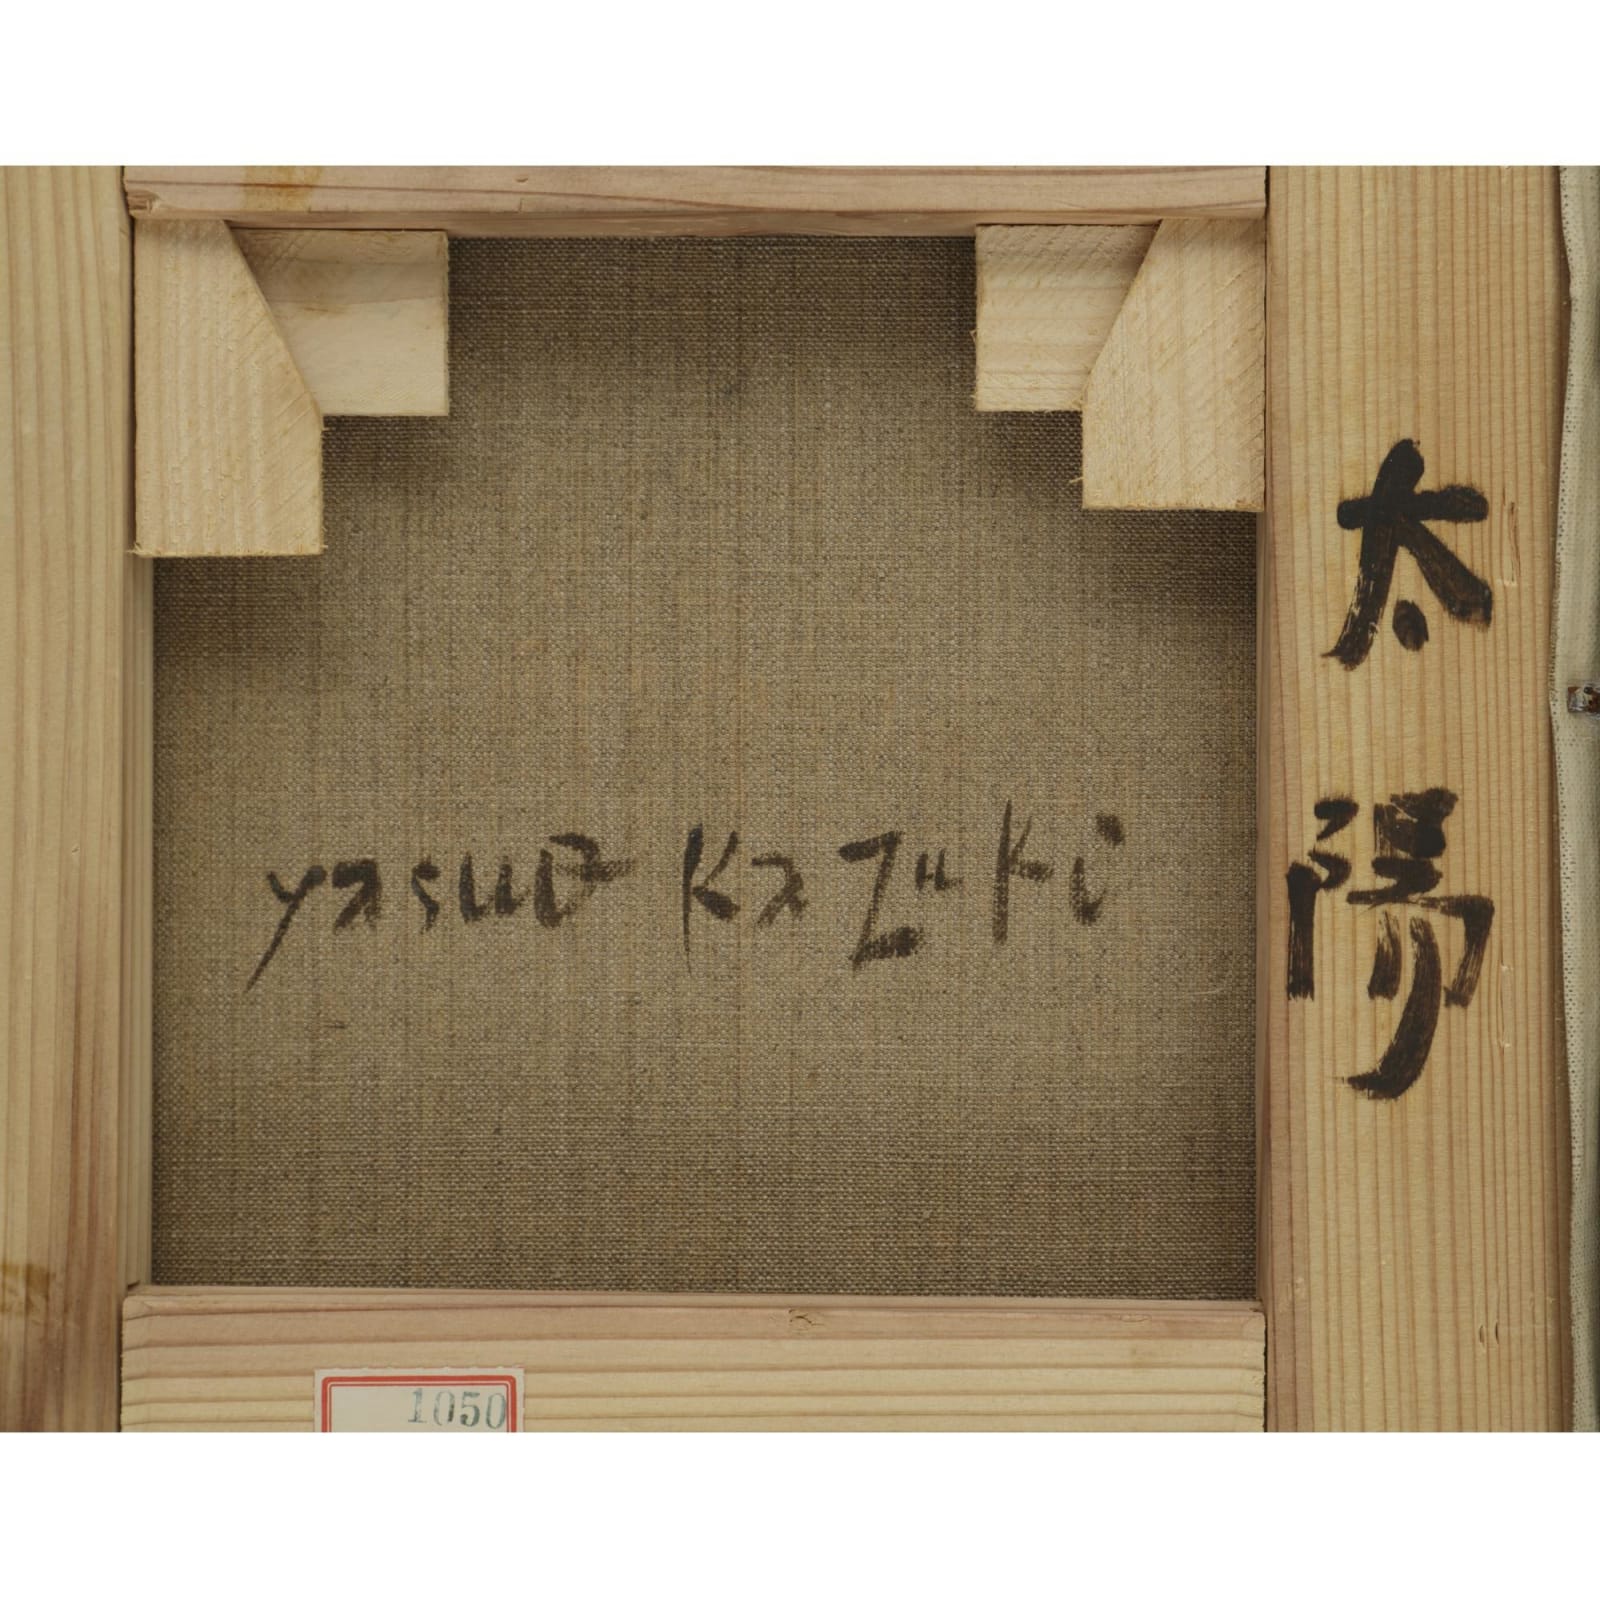 太陽
yasuo Kazuki
1050